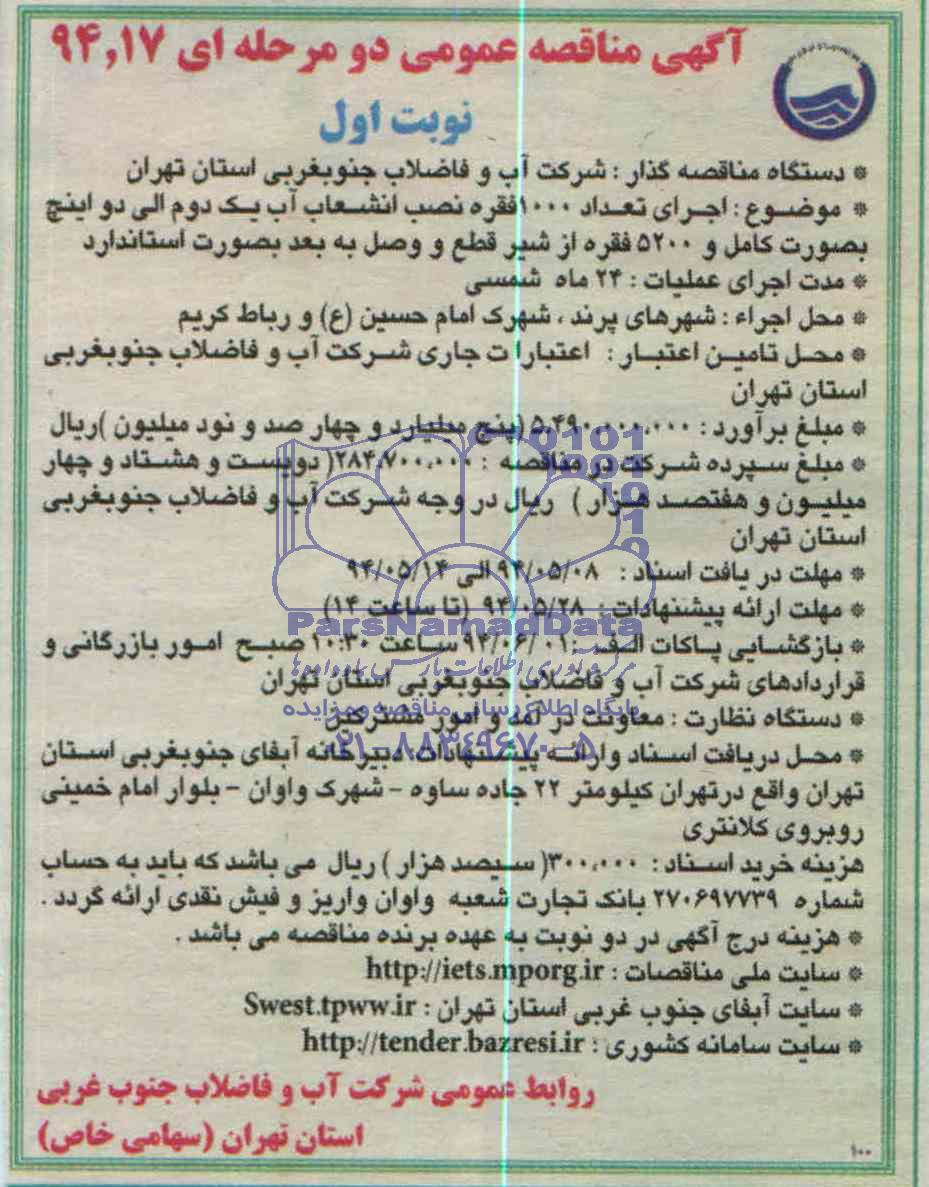 آگهی مناقصه عمومی دو مرحله ای ۹۴,۱۷
نوبت اول
* دستگاه مناقصه گذار : شرکت آب و فاضلاب جنوبغربی استان تهران
* موضوع : اجرای تعداد ۱۰۰۰فقره نصب انشعاب آب یک دوم الی دو اینچ
بصورت کامل و ۵۲۰۰ فقره از شیر قطع و وصل به بعد بصورت استاندارد
* مدت اجرای عملیات : ۲۴ ماه شمسی
* محل اجراء : شهرهای پرند ، شهرک امام حسین (ع) و رباط کریم
* محل تامین اعتبار : اعتبارات جاری شرکت آب و فاضلاب جنوبغربی
استان تهران
* مبلغ برآورد : ۵،۴۹۰،۰۰۰،۰۰۰ (پنج میلیارد و چهار صد و نود میلیون )ریال
* مبلغ سپرده شرکت در مناقصه : ۲۸۴،۷۰۰،۰۰۰( دویست و هشتاد و چهار
میلیون و هفتصد هزار ) ریال در وجه شرکت آب و فاضلاب جنوبغربی
استان تهران
* مهلت دریافت اسناد : ۹۴/۰۵/۰۸ الی ۹۴/۰۵/۱۴
* مهلت ارائه پیشنهادات : ۹۴/۰۵/۲۸ (تا ساعت ۱۴)
ParsNamadData
* بازگشایی پاکات الف : ۹۴/۰۶/۰۱ ساعت ۱۰:۳۰ صبح امور بازرگانی و
قراردادهای شرکت آب و فاضلاب جنوبغربی استان تهران
پایگاه اطلاع رسانی مناقصه و مزایده
* دستگاه نظارت : معاونت درآمد و امور مشترکین
۰۲۱-۸۸۳۴۹۶۷۰-۵
* محل دریافت اسناد وارائه پیشنهادات: دبیرخانه آبفای جنوبغربی استان
تهران واقع درتهران کیلومتر ۲۲ جاده ساوه - شهرک واوان - بلوار امام خمینی
روبروی کلانتری
هزینه خرید اسناد : ۳۰۰،۰۰۰( سیصد هزار ) ریال می باشد که باید به حساب
شماره ۲۷۰۶۹۷۷۳۹ بانک تجارت شعبه واوان واریز و فیش نقدی ارائه گردد .
* هزینه درج آگهی در دو نوبت به عهده برنده مناقصه می باشد .
* سایت ملی مناقصات : http://iets.mporg.ir
* سایت آبفای جنوب غربی استان تهران : Swest.tpww.ir
* سایت سامانه کشوری : http://tender.bazresi.ir
روابط عمومی شرکت آب و فاضلاب جنوب غربی
استان تهران (سهامی خاص)
۱۰۰